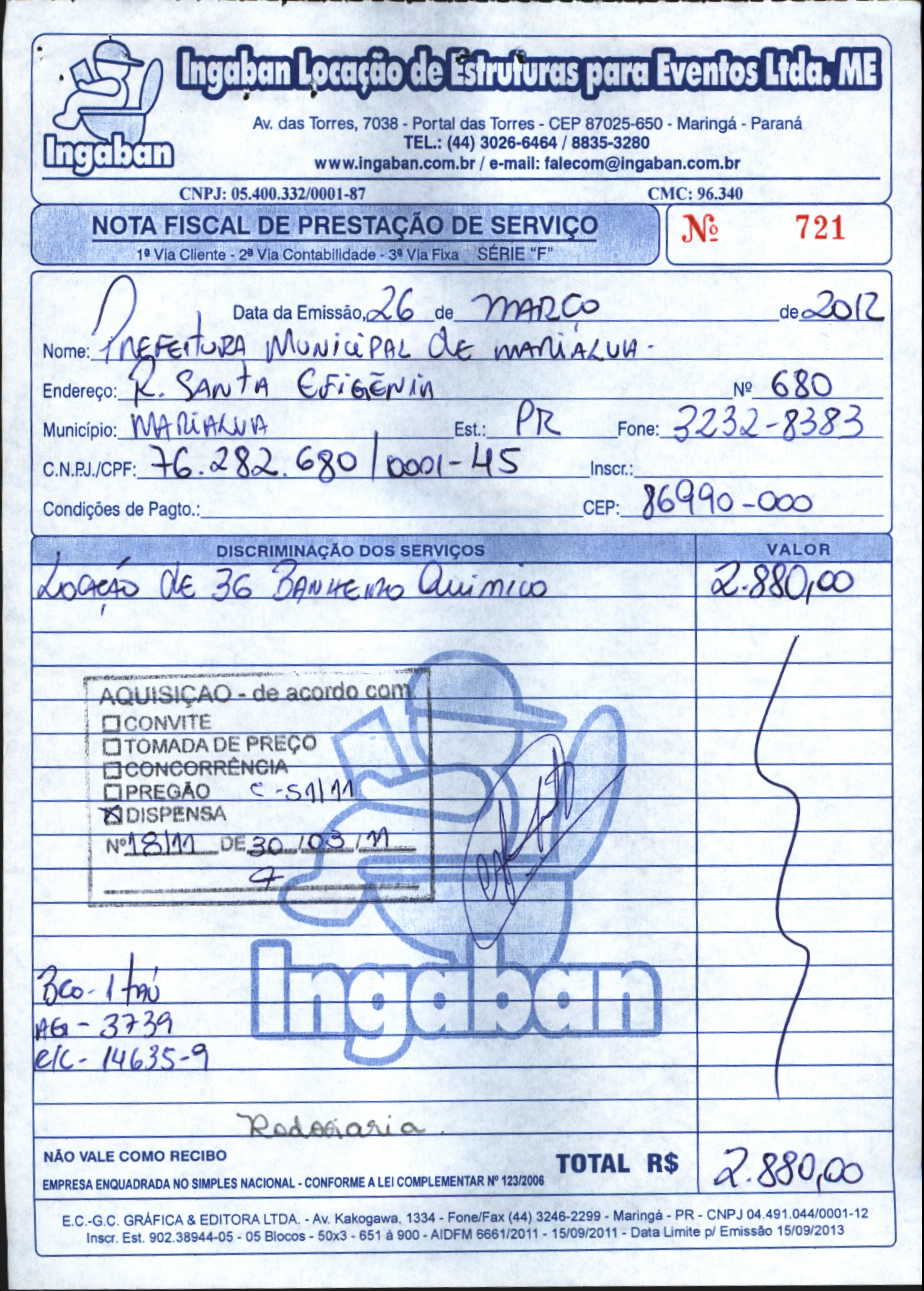 Ingaban
Ingaban Locação de Estruturas para Eventos Ltda. ME
Av. das Torres, 7038 - Portal das Torres - CEP 87025-650 - Maringá - Paraná
TEL.: (44) 3026-6464 / 8835-3280
www.ingaban.com.br / e-mail: falecom@ingaban.com.br
CNPJ: 05.400.332/0001-87 CMC: 96.340
NOTA FISCAL DE PRESTAÇÃO DE SERVIÇO
1ª Via Cliente - 2ª Via Contabilidade - 3ª Via Fixa SÉRIE "F"
Nº 721
Data da Emissão, 26 de MARÇO de 2012
Nome: PREFEITURA MUNICIPAL DE MARIALVA
Endereço: R. SANTA EFIGÊNIA Nº 680
Município: MARIALVA Est.: PR Fone: 3232-8383
C.N.PJ./CPF: 76.282.680/0001-45 Inscr.:
Condições de Pagto.: CEP: 86990-000
DISCRIMINAÇÃO DOS SERVIÇOS VALOR
LOCAÇÃO DE 36 BANHEIRO QUIMICO 2.880,00
AQUISIÇÃO - de acordo com
CONVITE
TOMADA DE PREÇO
CONCORRÊNCIA
PREGÃO C-51/11
DISPENSA
Nº 18/11 DE 30/03/11
Ingaban
BCO - ITAÚ
AG - 3739
C/C - 14635-9
NÃO VALE COMO RECIBO
TOTAL R$ 2.880,00
EMPRESA ENQUADRADA NO SIMPLES NACIONAL - CONFORME A LEI COMPLEMENTAR Nº 123/2006
E.C.-G.C. GRÁFICA & EDITORA LTDA. - Av. Kakogawa, 1334 - Fone/Fax (44) 3246-2299 - Maringá - PR - CNPJ 04.491.044/0001-12
Inscr. Est. 902.38944-05 - 05 Blocos - 50x3 - 651 à 900 - AIDFM 6661/2011 - 15/09/2011 - Data Limite p/ Emissão 15/09/2013